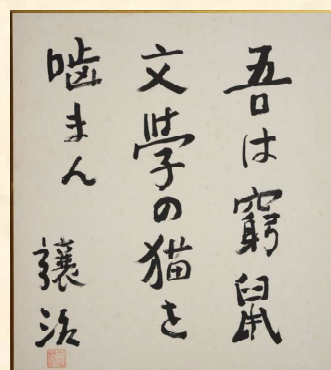 吾は窮鼠
文學の猫を
嚙まん
讓治